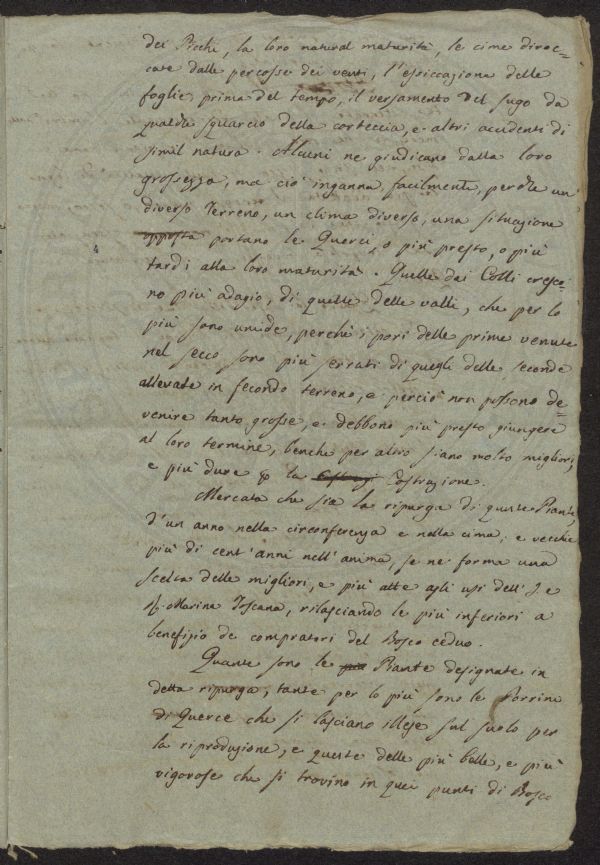 dei Picchi, la loro natural maturità, le cime diroc=
cate dalle percosse dei venti, l'essiccazione delle
foglie prima del tempo, il versamento del sugo da
qualche squarcio della corteccia, e altri accidenti di
simil natura. Alcuni ne giudicano dalla loro
grossezza, ma ciò inganna facilmente, perchè un
diverso Terreno, un clima diverso, una situazione
opposta portano le Querci, o più presto, o più
tardi alla loro maturità. Quelle dei Colli cresco=
no più adagio, di quelle delle valli, che per lo
più sono umide, perchè i pori delle prime venute
nel secco sono più serrati di quegli delle seconde
allevate in fecondo terreno, e perciò non possono de=
venire tanto grosse, e debbono più presto giungere
al loro termine, benchè per altro siano molto migliori,
e più dure p la Costruzione.
Mercata che sia la ripurga di queste Piante,
d'un anno nella circonferenza e nella cima, e vecchie
più di cent'anni nell'anima, se ne forma una
scelta delle migliori, e più atte agli usi dell'I. e
R. Marina Toscana, rilasciando le più inferiori a
benefizio de compratori del Bosco ceduo.
Quante sono le Piante designate in
detta ripurga, tante per lo più sono le Porrine
di Querce che si lasciano illese sul suolo per
la riproduzione, e queste delle più belle, e più
vigorose che si trovino in quei punti di Bosco
4